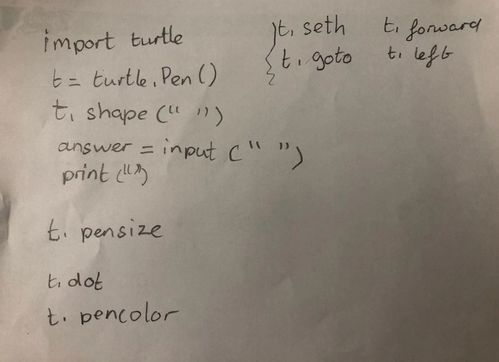 import turtle
t = turtle.Pen()
t. shape (" ")
answer = input (" ")
print ("")
t. pensize
t. dot
t. pencolor
t. seth t. forward
t. goto t. left